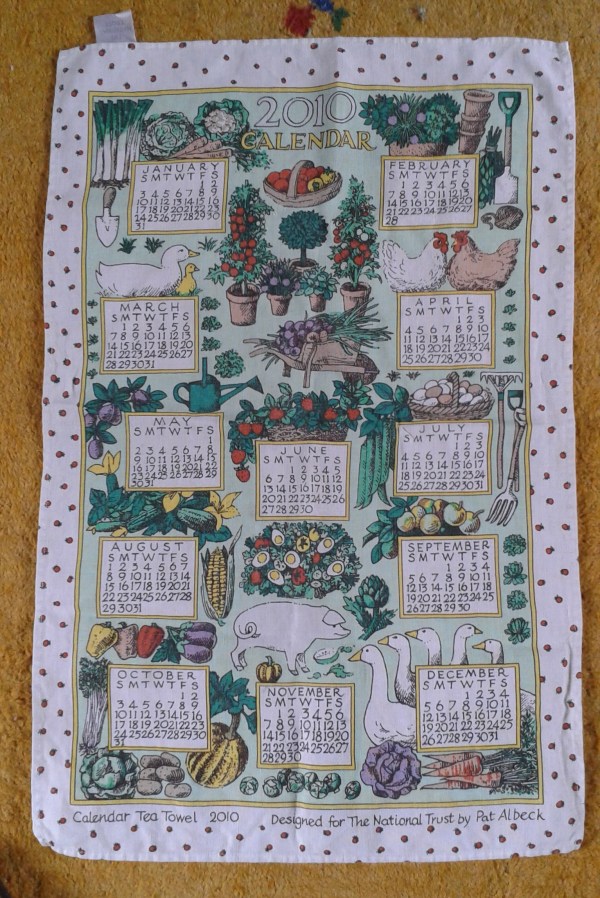 2010
CALENDAR
JANUARY
S M T W T F S
1 2
3 4 5 6 7 8 9
10 11 12 13 14 15 16
17 18 19 20 21 22 23
24 25 26 27 28 29 30
31
FEBRUARY
S M T W T F S
1 2 3 4 5 6
7 8 9 10 11 12 13
14 15 16 17 18 19 20
21 22 23 24 25 26 27
28
MARCH
S M T W T F S
1 2 3 4 5 6
7 8 9 10 11 12 13
14 15 16 17 18 19 20
21 22 23 24 25 26 27
28 29 30 31
APRIL
S M T W T F S
1 2 3
4 5 6 7 8 9 10
11 12 13 14 15 16 17
18 19 20 21 22 23 24
25 26 27 28 29 30
MAY
S M T W T F S
1
2 3 4 5 6 7 8
9 10 11 12 13 14 15
16 17 18 19 20 21 22
23 24 25 26 27 28 29
30 31
JUNE
S M T W T F S
1 2 3 4 5
6 7 8 9 10 11 12
13 14 15 16 17 18 19
20 21 22 23 24 25 26
27 28 29 30
JULY
S M T W T F S
1 2 3
4 5 6 7 8 9 10
11 12 13 14 15 16 17
18 19 20 21 22 23 24
25 26 27 28 29 30 31
AUGUST
S M T W T F S
1 2 3 4 5 6 7
8 9 10 11 12 13 14
15 16 17 18 19 20 21
22 23 24 25 26 27 28
29 30 31
SEPTEMBER
S M T W T F S
1 2 3 4
5 6 7 8 9 10 11
12 13 14 15 16 17 18
19 20 21 22 23 24 25
26 27 28 29 30
OCTOBER
S M T W T F S
1 2
3 4 5 6 7 8 9
10 11 12 13 14 15 16
17 18 19 20 21 22 23
24 25 26 27 28 29 30
31
NOVEMBER
S M T W T F S
1 2 3 4 5 6
7 8 9 10 11 12 13
14 15 16 17 18 19 20
21 22 23 24 25 26 27
28 29 30
DECEMBER
S M T W T F S
1 2 3 4
5 6 7 8 9 10 11
12 13 14 15 16 17 18
19 20 21 22 23 24 25
26 27 28 29 30 31
Calendar Tea Towel 2010 Designed for The National Trust by Pat Albeck